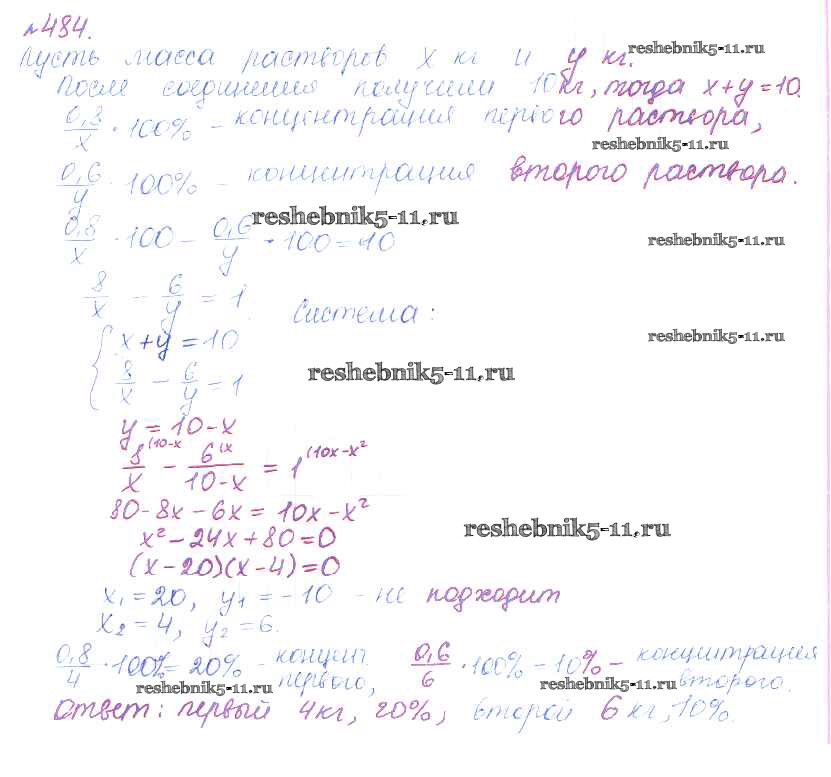 №484.
Пусть масса растворов x кг и y кг. reshebnik5-11.ru
После соединения получили 10 кг, тогда x+y=10.
0,8/x · 100% – концентрация первого раствора,
reshebnik5-11.ru
0,6/y · 100% – концентрация второго раствора.
reshebnik5-11.ru
0,8/x · 100 – 0,6/y · 100 = 10 reshebnik5-11.ru
8/x – 6/y = 1. Система:
{ x+y=10 reshebnik5-11.ru
8/x – 6/y = 1 reshebnik5-11.ru
y = 10-x
8/x (10-x – 6/(10-x) (x = 1 (10x-x²
80-8x-6x = 10x-x²
x²-24x+80=0 reshebnik5-11.ru
(x-20)(x-4)=0
x₁=20, y₁=-10 - не подходит
x₂=4, y₂=6.
0,8/4 · 100% = 20% - концент. первого, 0,6/6 · 100% – 10% – концентрация второго.
reshebnik5-11.ru reshebnik5-11.ru
Ответ: первый 4кг, 20%, второй 6 кг, 10%.